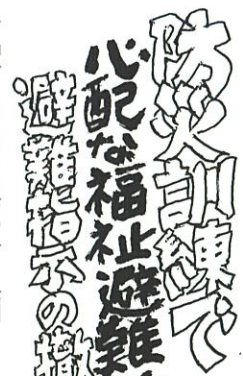 防災訓練で
心配な福祉避難
避難指示の撤